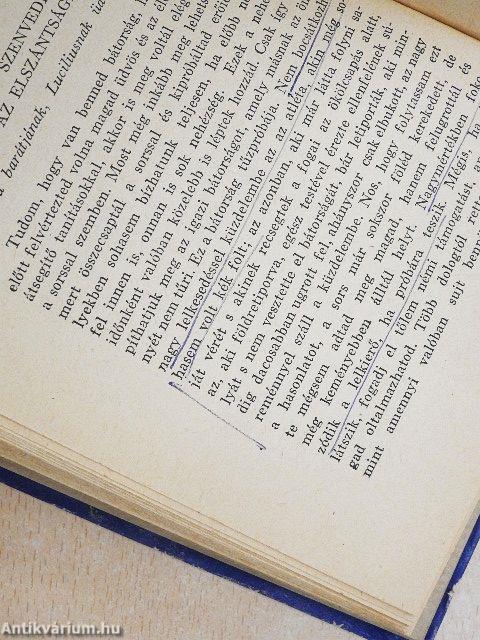 SZENVEDÉ
AZ ELSZÁNTSÁG
barátjának, Luciliusnak üd
Tudom, hogy van benned bátorság, h
előtt felvértezted volna magad üdvös és az él
átsegítő tanításokkal, akkor is meg voltál elég
a sorssal szemben. Most még inkább meg lehets
mert összecsaptál a sorssal és kipróbáltad erőid
lyekben sohasem bízhatunk teljesen, ha előbb ne
fel innen is, onnan is sok nehézség. Ezek a nehé
időnként valóban közelebb is léptek hozzád. Csak így
píthatjuk meg az igazi bátorságot, amely másnak az ön
nyét nem tűri. Ez a bátorság tűzpróbája. Nem borzálkodh
nagy lelkesedéssel küzdelembe az az atléta, akin még so-
hasem volt kék folt; az azonban, aki már látta folyni sa-
ját vérét s akinek reccsegtek a fogai az ökölcsapás alatt,
az, aki földreterporva, egész testével érezte ellenfelének sú-
lyát s nem vesztette el bátorságát, bár letiporták, aki min-
dig dacosabban ugrott fel, ahányszor csak elbukott, az nagy
reménnyel száll a küzdelembe. Nos, hogy folytassam ezt
a hasonlatot, a sors már sokszor föléd kerekedett, de
te mégsem adtad meg magad, hanem felugrottál és
még keményebben álltál helyt. Nagymértékben foko-
zódik a lelkierő, ha próbára teszik. Mégis, ha
látszik, fogadj el tőlem némi támogatást, am
gad oltalmazhatod. Több dologtól rette
mint amennyi valóban sújt benn
Antikvárium.hu